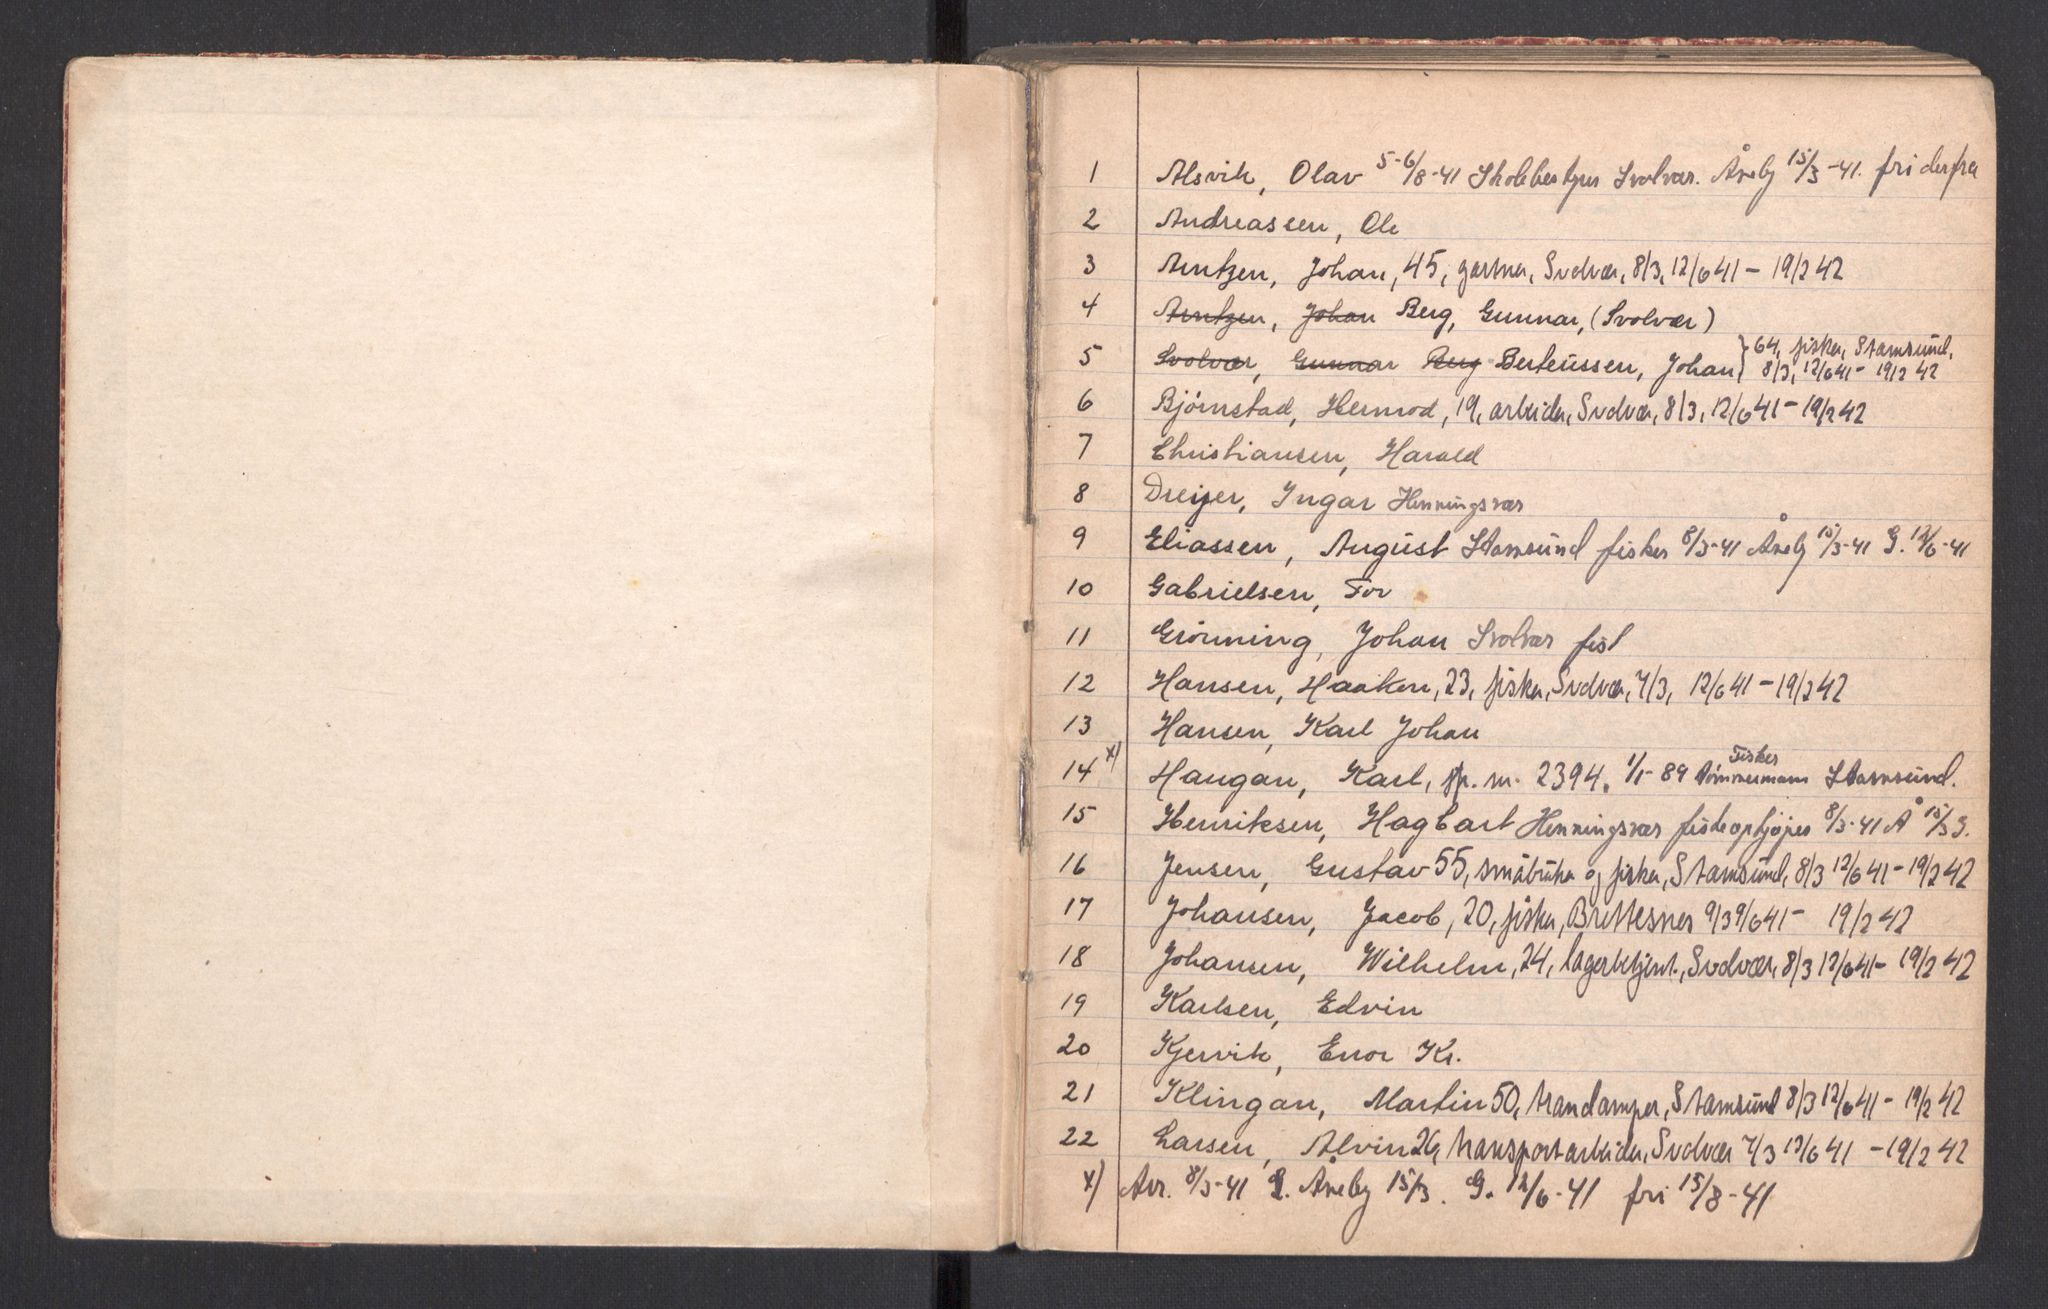 1 Alsvik, Olav 5-6/8-41 Skolebestyrer Svolvær. Åneby 15/3-41. fri derfra
2 Andreassen, Ole
3 Arntzen, Johan, 45, gartner, Svolvær, 8/3, 12/6 41 - 19/2 42
4 Arntzen, Johan Berg, Gunnar, (Svolvær)
5 Svolvær, Gunnar Berg Berteussen, Johan } 64, fisker, Stamsund,
8/3, 12/6 41 - 19/2 42
6 Bjørnstad, Hermod, 19, arbeider, Svolvær, 8/3, 12/6 41 - 19/2 42
7 Christiansen, Harald
8 Dreyer, Ingar Henningsvær
9 Eliassen, August Stamsund fisker 8/3-41 Åneby 15/3-41 G. 12/6-41
10 Gabrielsen, Tor
11 Grønning, Johan Svolvær fisk
12 Hansen, Haakon, 23, fisker, Svolvær, 7/3, 12/6 41 - 19/2 42
13 Hansen, Karl Johan
14 x) Haugan, Karl, sp. m. 2394. 1/1-89 Fisker Tømmermann Stamsund.
15 Henriksen, Hagbart Henningsvær fiskeoppkjøper 8/3-41 Å 15/3 G.
16 Jensen, Gustav 55, småbruker og fisker, Stamsund, 8/3 12/6 41 - 19/2 42
17 Johansen, Jacob, 20, fisker, Brettesnes 9/3 9/6 41 - 19/2 42
18 Johansen, Wilhelm, 24, lagerbetjent., Svolvær, 8/3 12/6 41 - 19/2 42
19 Karlsen, Edvin
20 Kjervik, Enor Kr.
21 Klingan, Martin 50, trandamper, Stamsund 8/3 12/6 41 - 19/2 42
22 Larsen, Alvin 26, transportarbeider, Svolvær 7/3 12/6 41 - 19/2 42
x) Arr. 8/3-41 Åneby 15/3. G. 12/6-41 fri 15/8-41